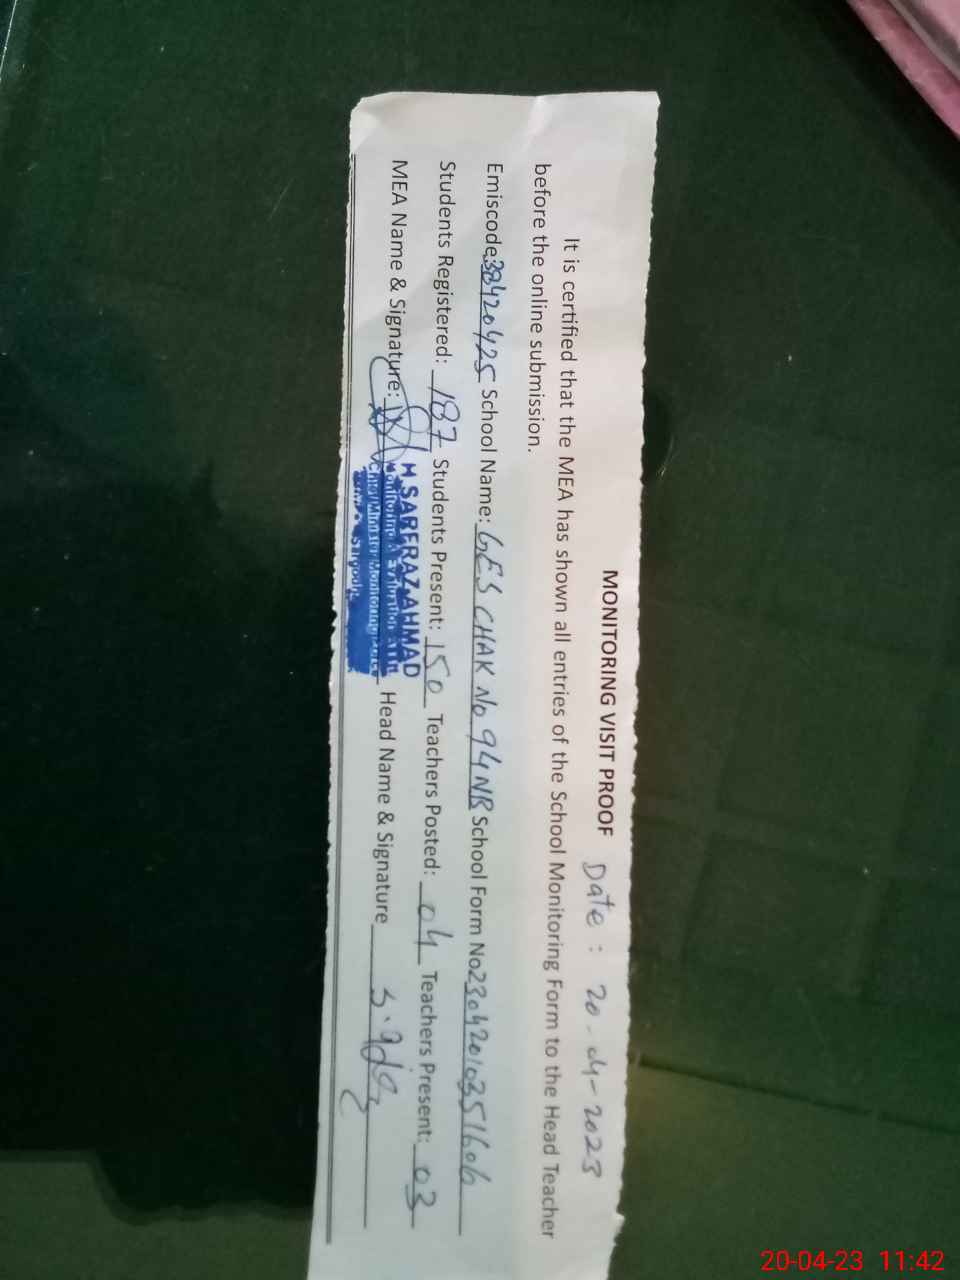 MONITORING VISIT PROOF Date : 20-04-2023
It is certified that the MEA has shown all entries of the School Monitoring Form to the Head Teacher
before the online submission.
Emiscode:38420425 School Name: GES CHAK No 94NB School Form No23042010351606
Students Registered: 187 Students Present: 150 Teachers Posted: 04 Teachers Present: 03
MEA Name & Signature: Head Name & Signature
H.SARFRAZ AHMAD
20-04-23 11:42